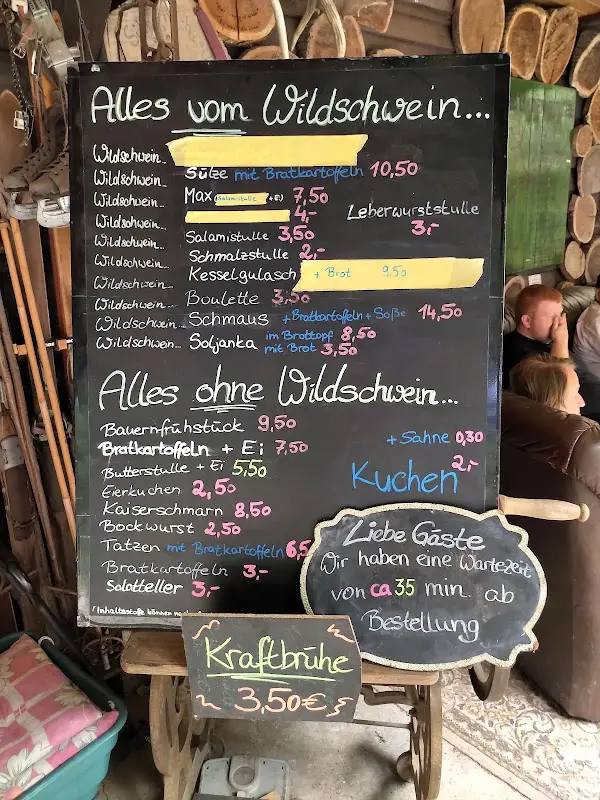 Alles vom Wildschwein...
Wildschwein...
Wildschwein.. Sülze mit Bratkartoffeln 10,50
Wildschwein... Max (Salamistulle + Ei) 7,50
Wildschwein... 4,-
Leberwurststulle
3,-
Wildschwein... Salamistulle 3,50
Wildschwein... Schmalzstulle 2,-
Wildschwein... Kesselgulasch + Brot 9,50
Wildschwein... Boulette 3,50
Wildschwein... Schmaus + Bratkartoffeln + Soße 14,50
Wildschwein... Soljanka im Brottopf 8,50
mit Brot 3,50
Alles ohne Wildschwein...
Bauernfrühstück 9,50
Bratkartoffeln + Ei 7,50
Butterstulle + Ei 5,50
Eierkuchen 2,50
Kaiserschmarn 8,50
Bockwurst 2,50
Tatzen mit Bratkartoffeln 6,5
Bratkartoffeln 3,-
Salatteller 3,-
+ Sahne 0,30
Kuchen 2,-
*Inhaltsstoffe können
Liebe Gäste
Wir haben eine Wartezeit
von ca 35 min. ab
Bestellung
Kraftbrühe
3,50€